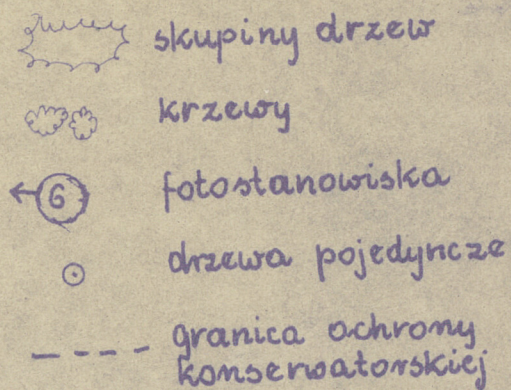 skupiny drzew
krzewy
6 fotostanowiska
drzewa pojedyncze
granica ochrony
konserwatorskiej